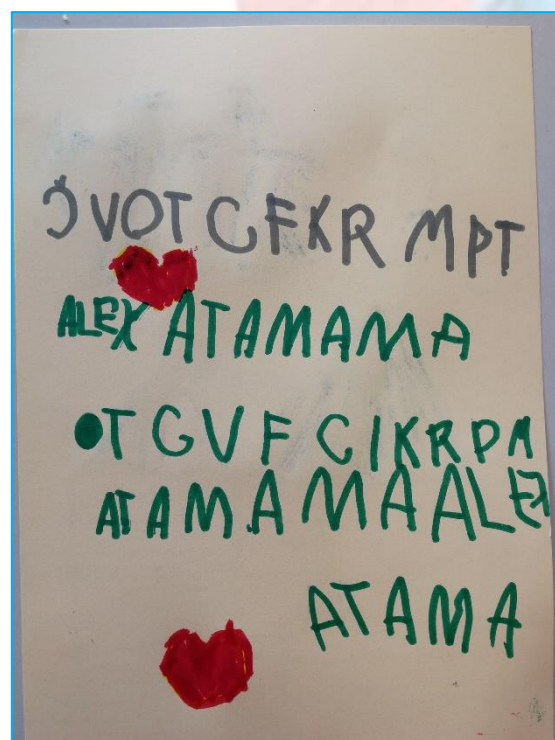 ƆVOT CFKR MPT
ALEX ATAMAMA
OT GVF CIKRPM
ATAMAMAALEX
ATAMA